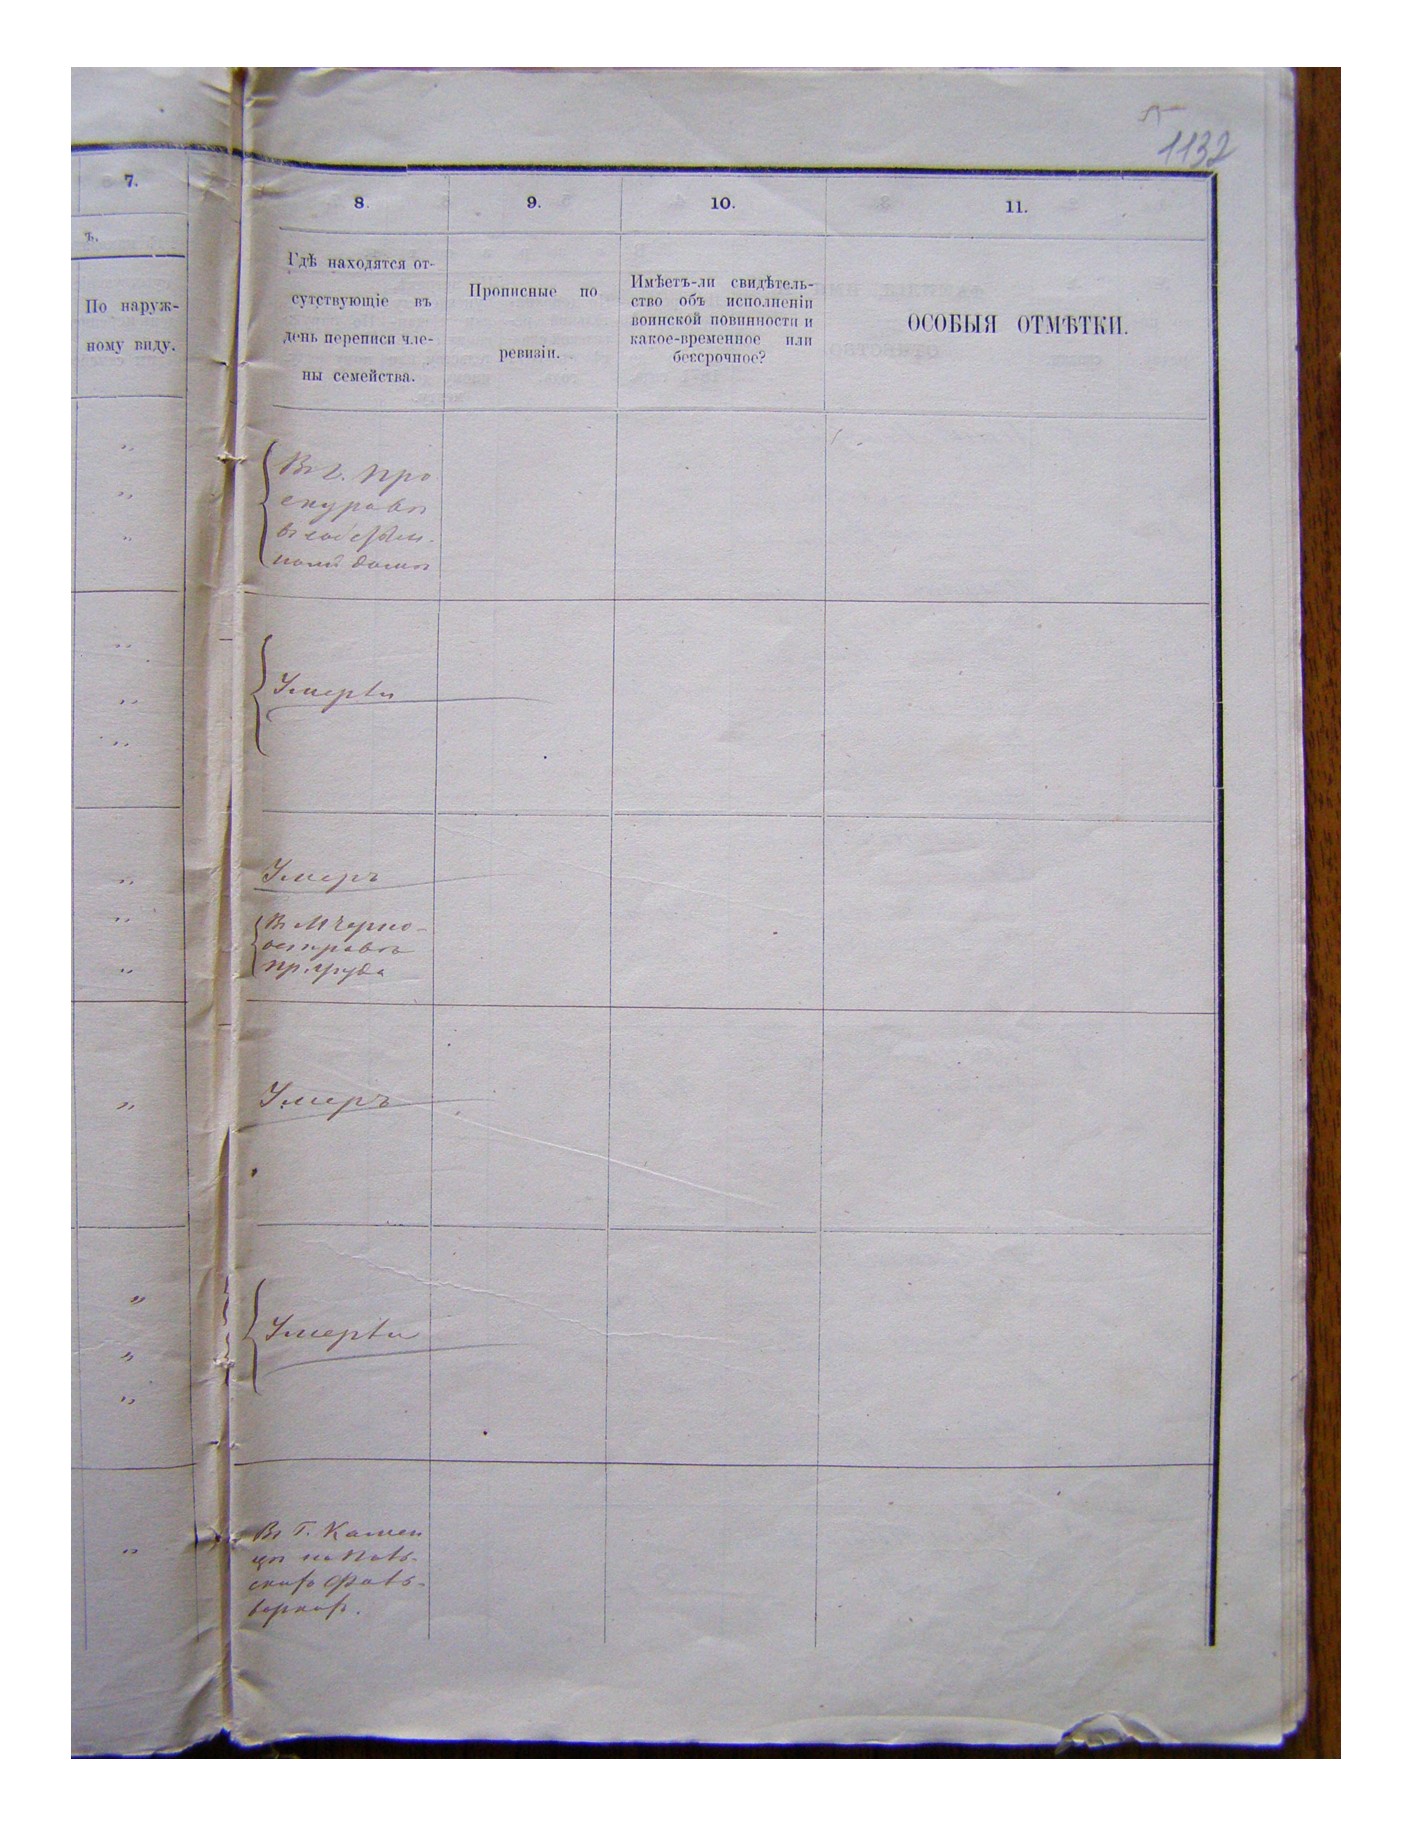 1132
7.
8.
9.
10.
11.
ъ.
По наруж-
ному виду.
Гдѣ находятся от-
сутствующіе въ
день переписи чле-
ны семейства.
Прописные по
ревизіи.
Имѣетъ-ли свидѣтель-
ство объ исполненіи
воинской повинности и
какое-временное или
безсрочное?
ОСОБЫЯ ОТМѢТКИ.
„
„
„
Въ г. Про
скуровѣ
въ собствен-
номъ домѣ
„
„
„
Умерли
„
Умеръ
„
Въ М Черно-
островѣ
„
„
Умеръ
„
Умерли
„
„
„
Въ Г. Камен
цѣ на Поль-
скихъ Фоль-
варкахъ.